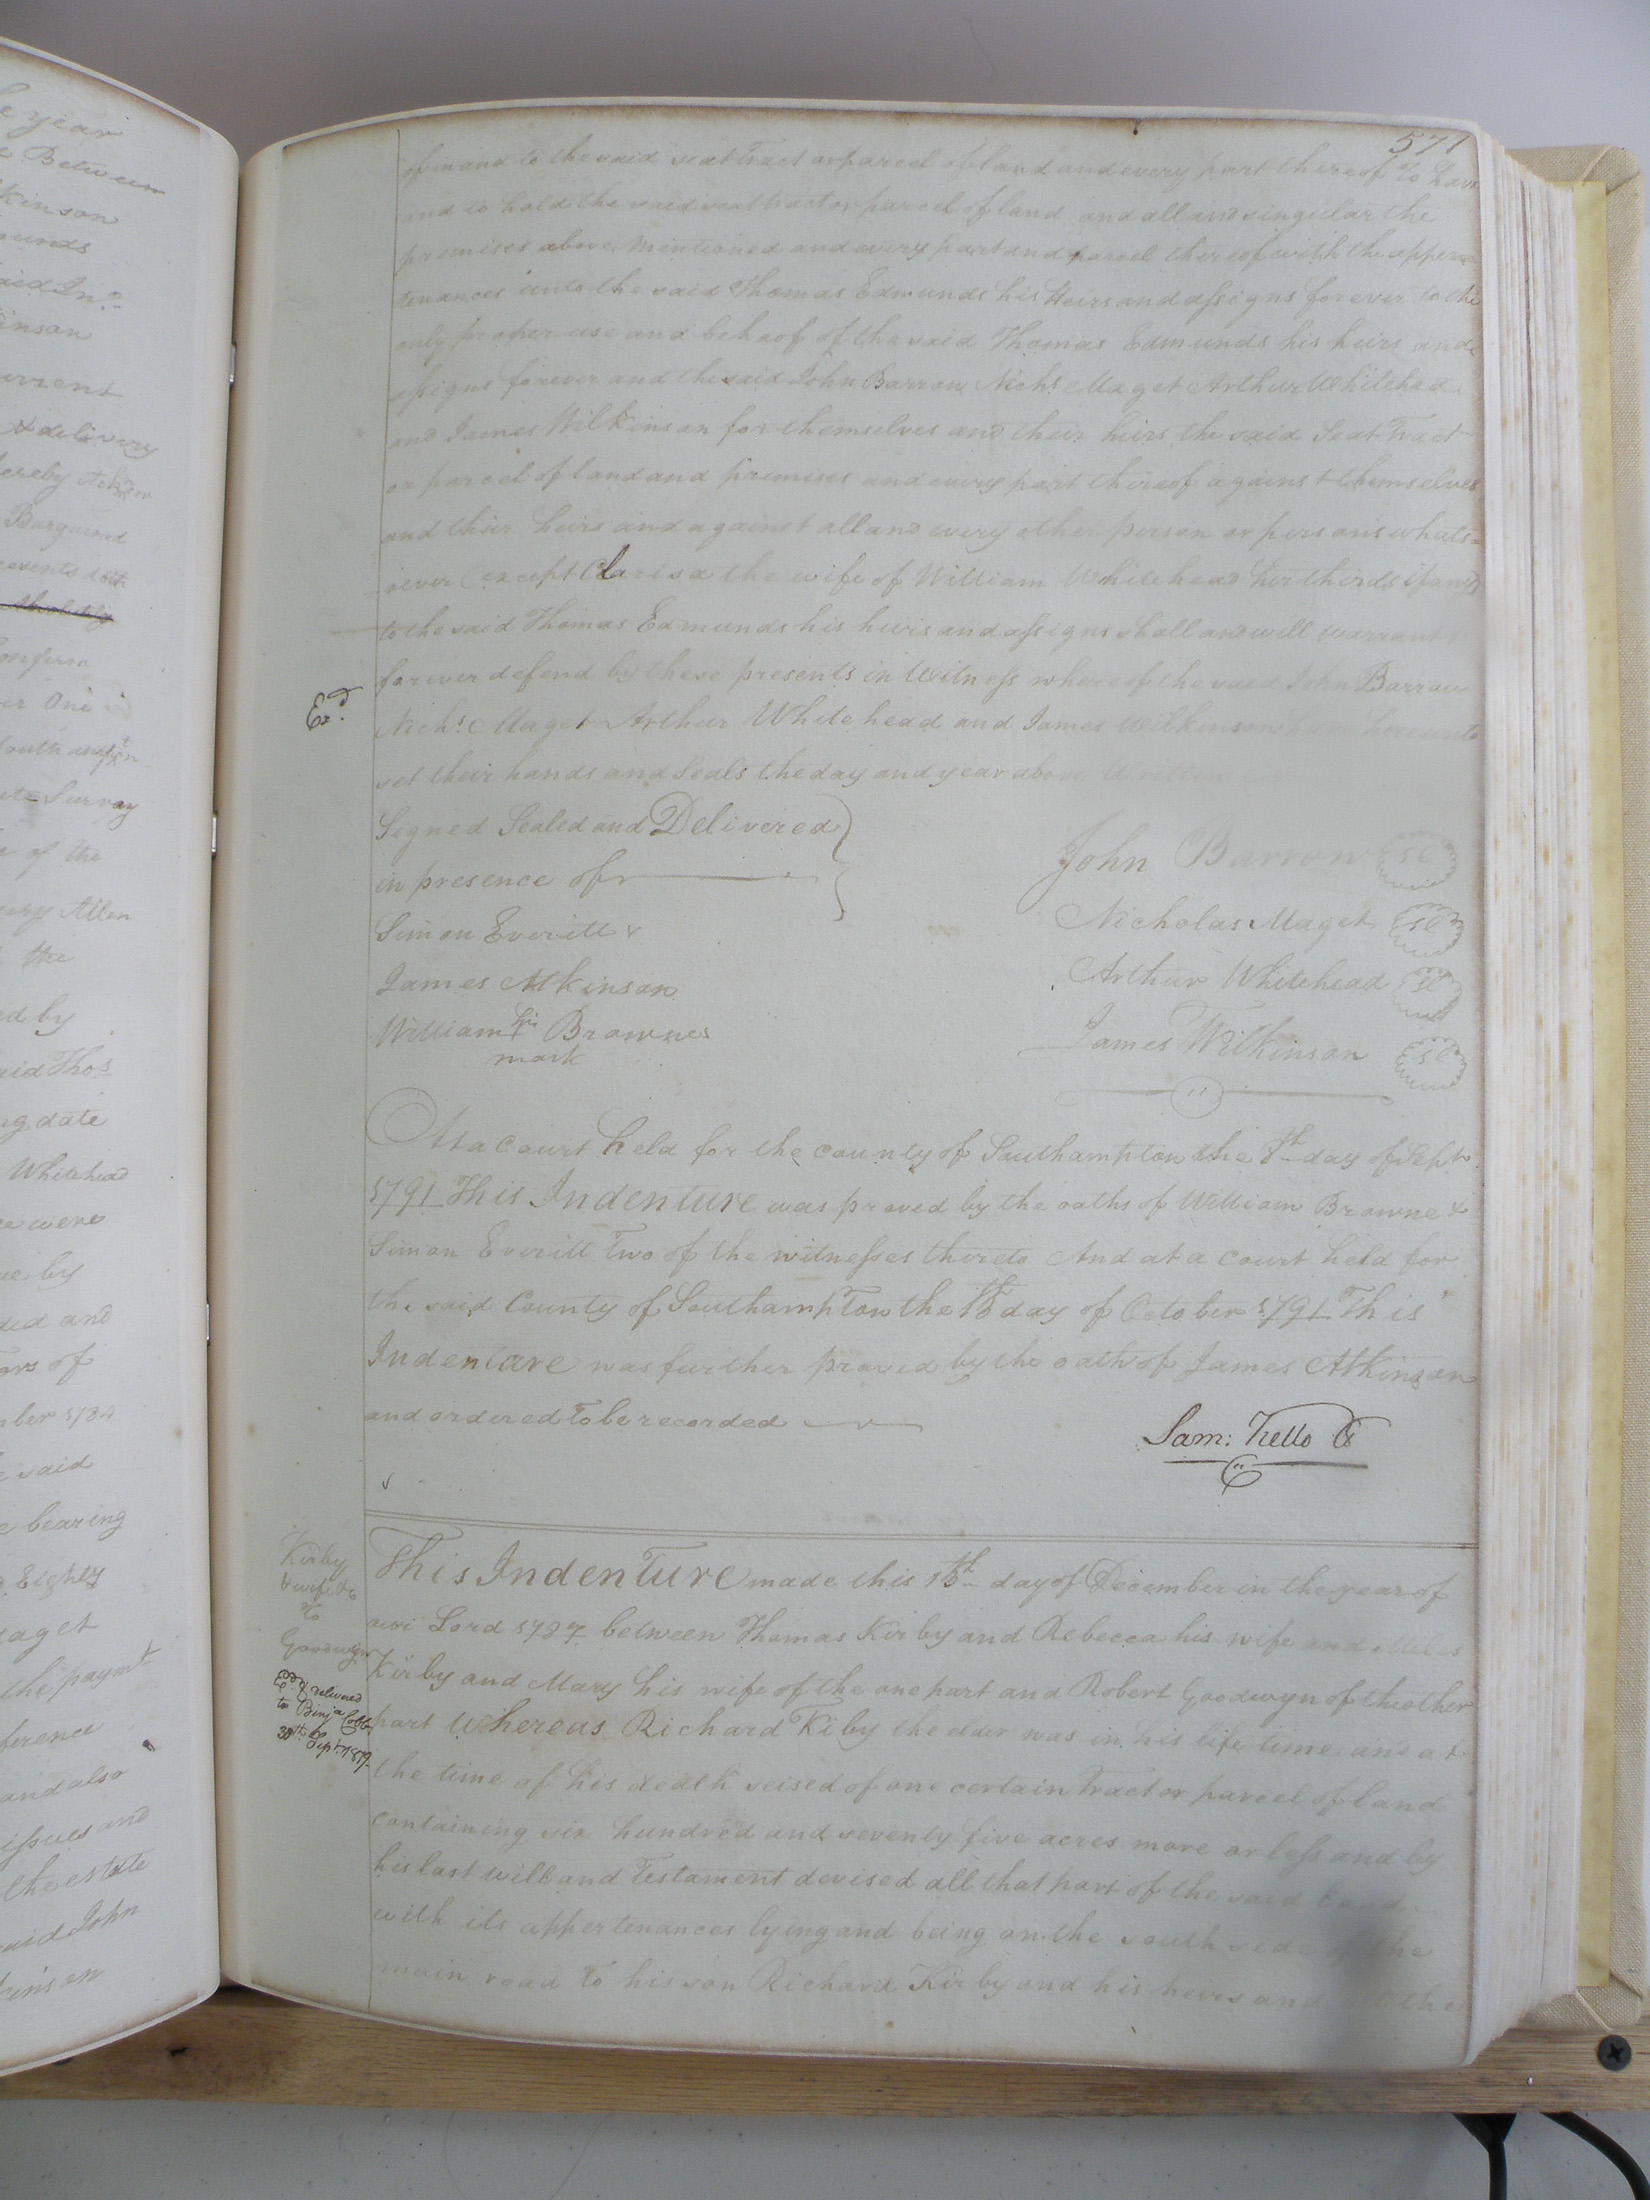 e year
t Between
kinson
ounds
said Jno.
inson
urrent
& delivery
hereby
Bargained
esents doth
absolutely
Confirm
One
South
Survey
e of the
Allen
the
ed by
said Thos.
ng date
Whitehead
were
ue by
ded and
ars of
mber 1784
e said
e bearing
Eighty
Maget
the paymt.
ference
and also
issues and
the estate
said John
kinson
571
of in and to the said seat Tract or parcel of land and every part thereof To have
and to hold the said seat tract or parcel of land and all and singular the
premises above mentioned and every part and parcel thereof with the apper=
tenances unto the said Thomas Edmunds his Heirs and assigns forever to the
only proper use and behoof of the said Thomas Edmunds his heirs and
assigns forever and the said John Barrow Nichs. Maget Arthur Whitehead
and James Wilkinson for themselves and their heirs the said Seat Tract
or parcel of land and premises and every part thereof against themselves
and their heirs and against all and every other person or persons whats=
oever (except Clarisa the wife of William Whitehead her thirds if any)
to the said Thomas Edmunds his heirs and assigns shall and will warrant
forever defend by these presents in Witness whereof the said John Barrow
Exd.
Nichs. Maget Arthur Whitehead and James Wilkinson have hereunto
set their hands and Seals the day and year above Written
Signed Sealed and Delivered
in presence of
John Barrow
Simon Everitt
Nicholas Maget
James Atkinson
Arthur Whitehead
William his Browne
mark
James Wilkinson
At a Court held for the county of Southampton the 8th day of Septr.
1791 This Indenture was proved by the oaths of William Browne &
Simon Everitt Two of the witnesses thereto And at a Court held for
the said County of Southampton the day of October 1791 This
Indenture was further proved by the oath of James Atkinson
and ordered To be recorded
Sam: Kello
Kirby
& wife &c
To
Goodwyn
Exd. & delivered
to Benja Cobb
30th Sept. 1819
This Indenture made this day of December in the year of
our Lord 1787 between Thomas Kirby and Rebecca his wife and Miles
Kirby and Mary his wife of the one part and Robert Goodwyn of the other
part Whereas Richard Kiby the elder was in his life time and at
the time of his death seised of one certain Tract or parcel of land
containing six hundred and seventy five acres more or less and by
his last will and Testament devised all that part of the said land
with its appertenances lying and being on the south side of the
main road To his son Richard Kirby and his heirs and the